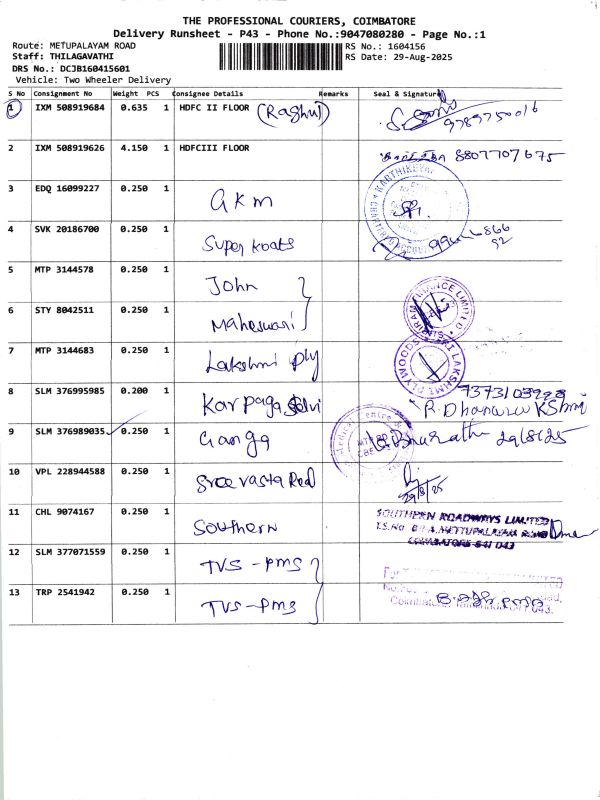 THE PROFESSIONAL COURIERS, COIMBATORE
Delivery Runsheet - P43 - Phone No.:9047080280 - Page No.:1
Route: METUPALAYAM ROAD
RS No.: 1604156
Staff: THILAGAVATHI
RS Date: 29-Aug-2025
DRS No.: DCJB160415601
Vehicle: Two Wheeler Delivery
S No Consignment No Weight PCS Consignee Details Remarks Seal & Signature
1 IXM 508919684 0.635 1 HDFC II FLOOR (Raghu) 9789750016
2 IXM 508919626 4.150 1 HDFCIII FLOOR 8807707675
3 EDQ 16099227 0.250 1 GKM
4 SVK 20186700 0.250 1 Super Koats
5 MTP 3144578 0.250 1 John
6 STY 8042511 0.250 1 Maheswari
7 MTP 3144683 0.250 1 Lakshmi Ply
8 SLM 376995985 0.200 1 Karpaga Selvi
9 SLM 376989035 0.250 1 Ganga Bharathi 29/8/25
10 VPL 228944588 0.250 1 Sree vasta Red 29/8/25
11 CHL 9074167 0.250 1 Southern SOUTHERN ROADWAYS LIMITED
METTUPALAYAM ROAD
COIMBATORE-641 043
12 SLM 377071559 0.250 1 TVS-PMS
13 TRP 2541942 0.250 1 TVS-PMS